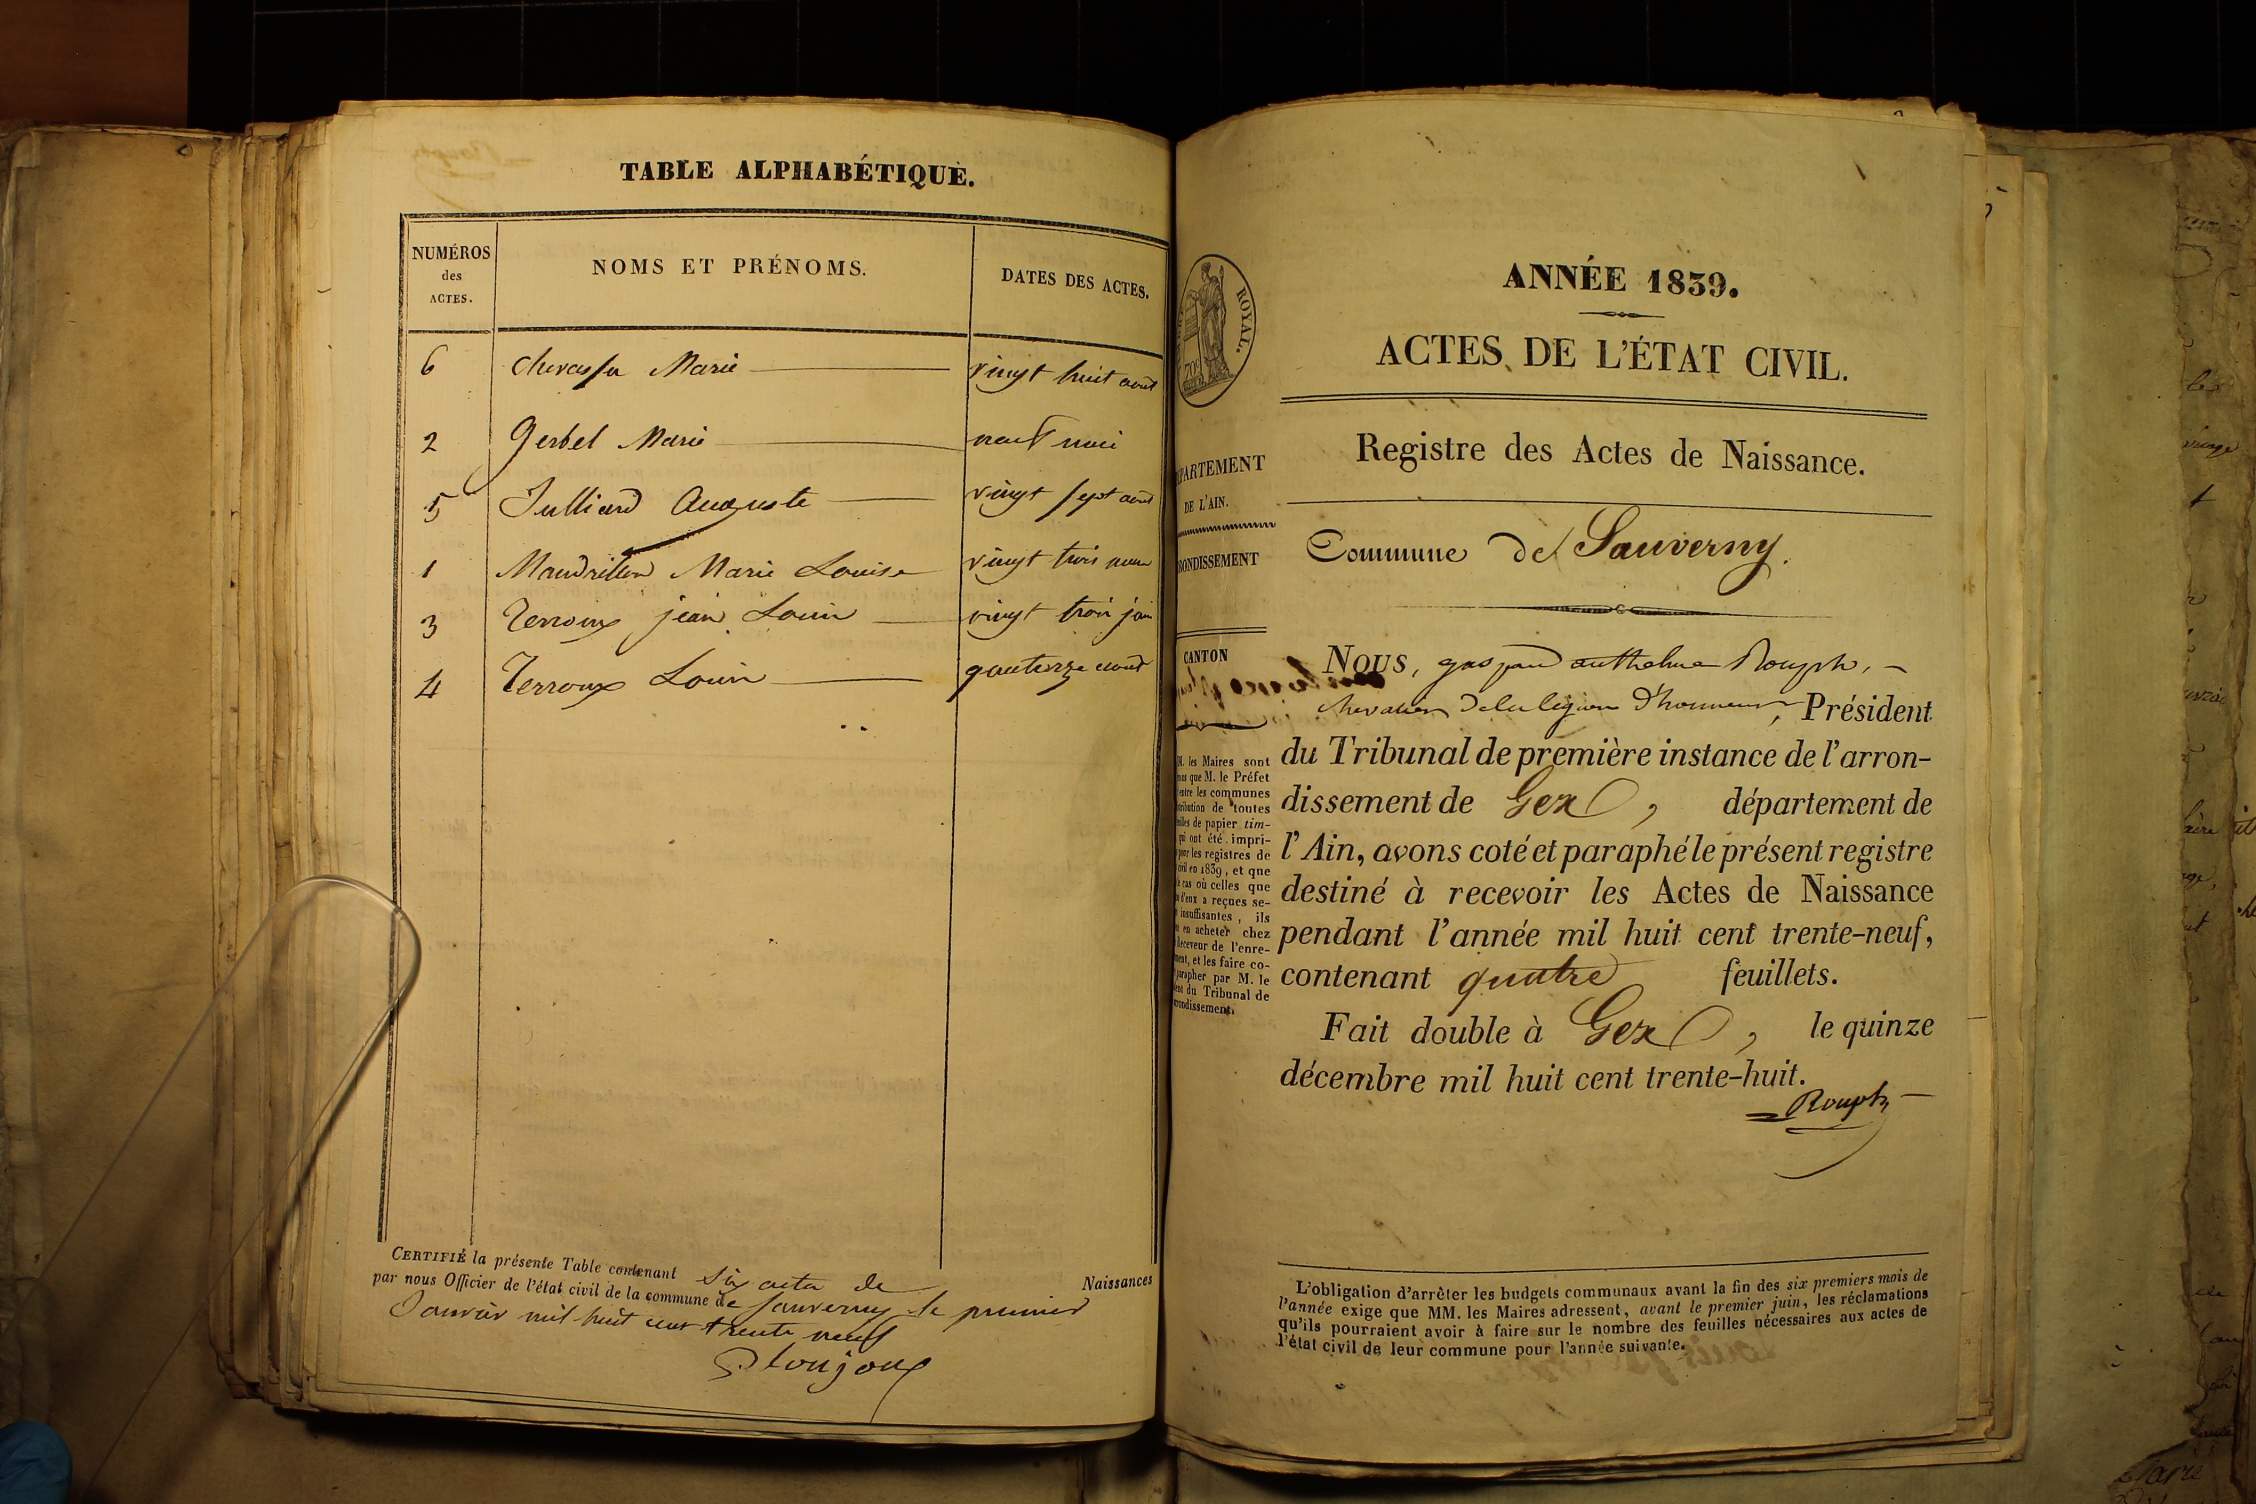 TABLE ALPHABÉTIQUE.
NUMÉROS des ACTES.
NOMS ET PRÉNOMS.
DATES DES ACTES.
6 Chevassu Marie vingt huit aout
2 Gerbel Marie neuf mai
5 Julliard Auguste vingt sept aout
1 Mandrillon Marie Louise vingt trois
3 Terroux jean Louis vingt trois juin
4 Terroux Louis quatorze aout
CERTIFIÉ la présente Table contenant six actes de Naissances
par nous Officier de l'état civil de la commune de Sauverny le premier
Janvier mil huit cent trente neuf
ROYAL.
ANNÉE 1839.
ACTES DE L'ÉTAT CIVIL.
Registre des Actes de Naissance.
PARTEMENT
DE L'AIN.
RONDISSEMENT
CANTON
Commune de Sauverny.
NOUS, gaspard anthelme Rouph,
chevalier de la légion d'honneur, Président
du Tribunal de première instance de l'arron-
dissement de Gex, département de
l'Ain, avons coté et paraphé le présent registre
destiné à recevoir les Actes de Naissance
pendant l'année mil huit cent trente-neuf,
contenant quatre feuillets.
Fait double à Gex, le quinze
décembre mil huit cent trente-huit.
Rouph
les Maires sont
que M. le Préfet
entre les communes
de toutes
de papier tim-
qui ont été impri-
pour les registres de
civil en 1839, et que
cas où celles que
d'eux a reçues se-
insuffisantes, ils
en acheter chez
Receveur de l'enre-
et les faire co-
parapher par M. le
du Tribunal de
L'obligation d'arrêter les budgets communaux avant la fin des six premiers mois de
l'année exige que MM. les Maires adressent, avant le premier juin, les réclamations
qu'ils pourraient avoir à faire sur le nombre des feuilles nécessaires aux actes de
l'état civil de leur commune pour l'année suivante.